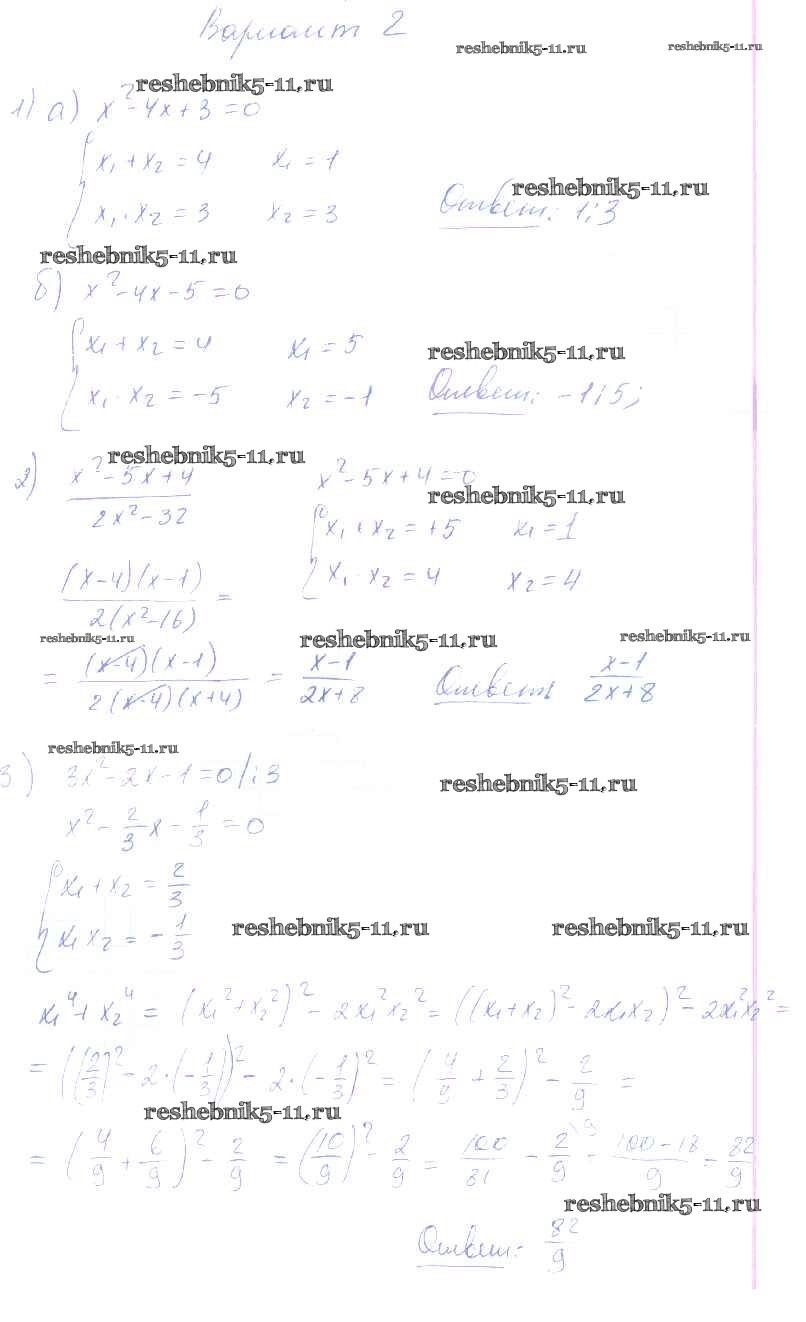 Вариант 2
reshebnik5-11.ru reshebnik5-11.ru
reshebnik5-11.ru
1) а) x² - 4x + 3 = 0
x₁ + x₂ = 4 x₁ = 1
reshebnik5-11.ru
x₁ · x₂ = 3 x₂ = 3 Ответ: 1; 3
reshebnik5-11.ru
б) x² - 4x - 5 = 0
x₁ + x₂ = 4 x₁ = 5
reshebnik5-11.ru
x₁ · x₂ = -5 x₂ = -1 Ответ: -1; 5;
reshebnik5-11.ru
2) (x² - 5x + 4)/(2x² - 32) x² - 5x + 4 = 0
reshebnik5-11.ru
x₁ + x₂ = +5 x₁ = 1
((x-4)(x-1))/(2(x²-16)) = x₁ · x₂ = 4 x₂ = 4
reshebnik5-11.ru reshebnik5-11.ru reshebnik5-11.ru
= ((x-4)(x-1))/(2(x-4)(x+4)) = (x-1)/(2x+8) Ответ: (x-1)/(2x+8)
reshebnik5-11.ru
3) 3x² - 2x - 1 = 0 /:3
reshebnik5-11.ru
x² - 2/3 x - 1/3 = 0
x₁ + x₂ = 2/3
x₁ x₂ = - 1/3
reshebnik5-11.ru reshebnik5-11.ru
x₁⁴ + x₂⁴ = (x₁² + x₂²)² - 2x₁²x₂² = ((x₁ + x₂)² - 2x₁x₂)² - 2x₁²x₂² =
= ((2/3)² - 2·(-1/3))² - 2·(-1/3)² = (4/9 + 2/3)² - 2/9 =
reshebnik5-11.ru
= (4/9 + 6/9)² - 2/9 = (10/9)² - 2/9 = 100/81 - 2/9 \9 = (100-18)/9 = 82/9
reshebnik5-11.ru
Ответ: 82/9